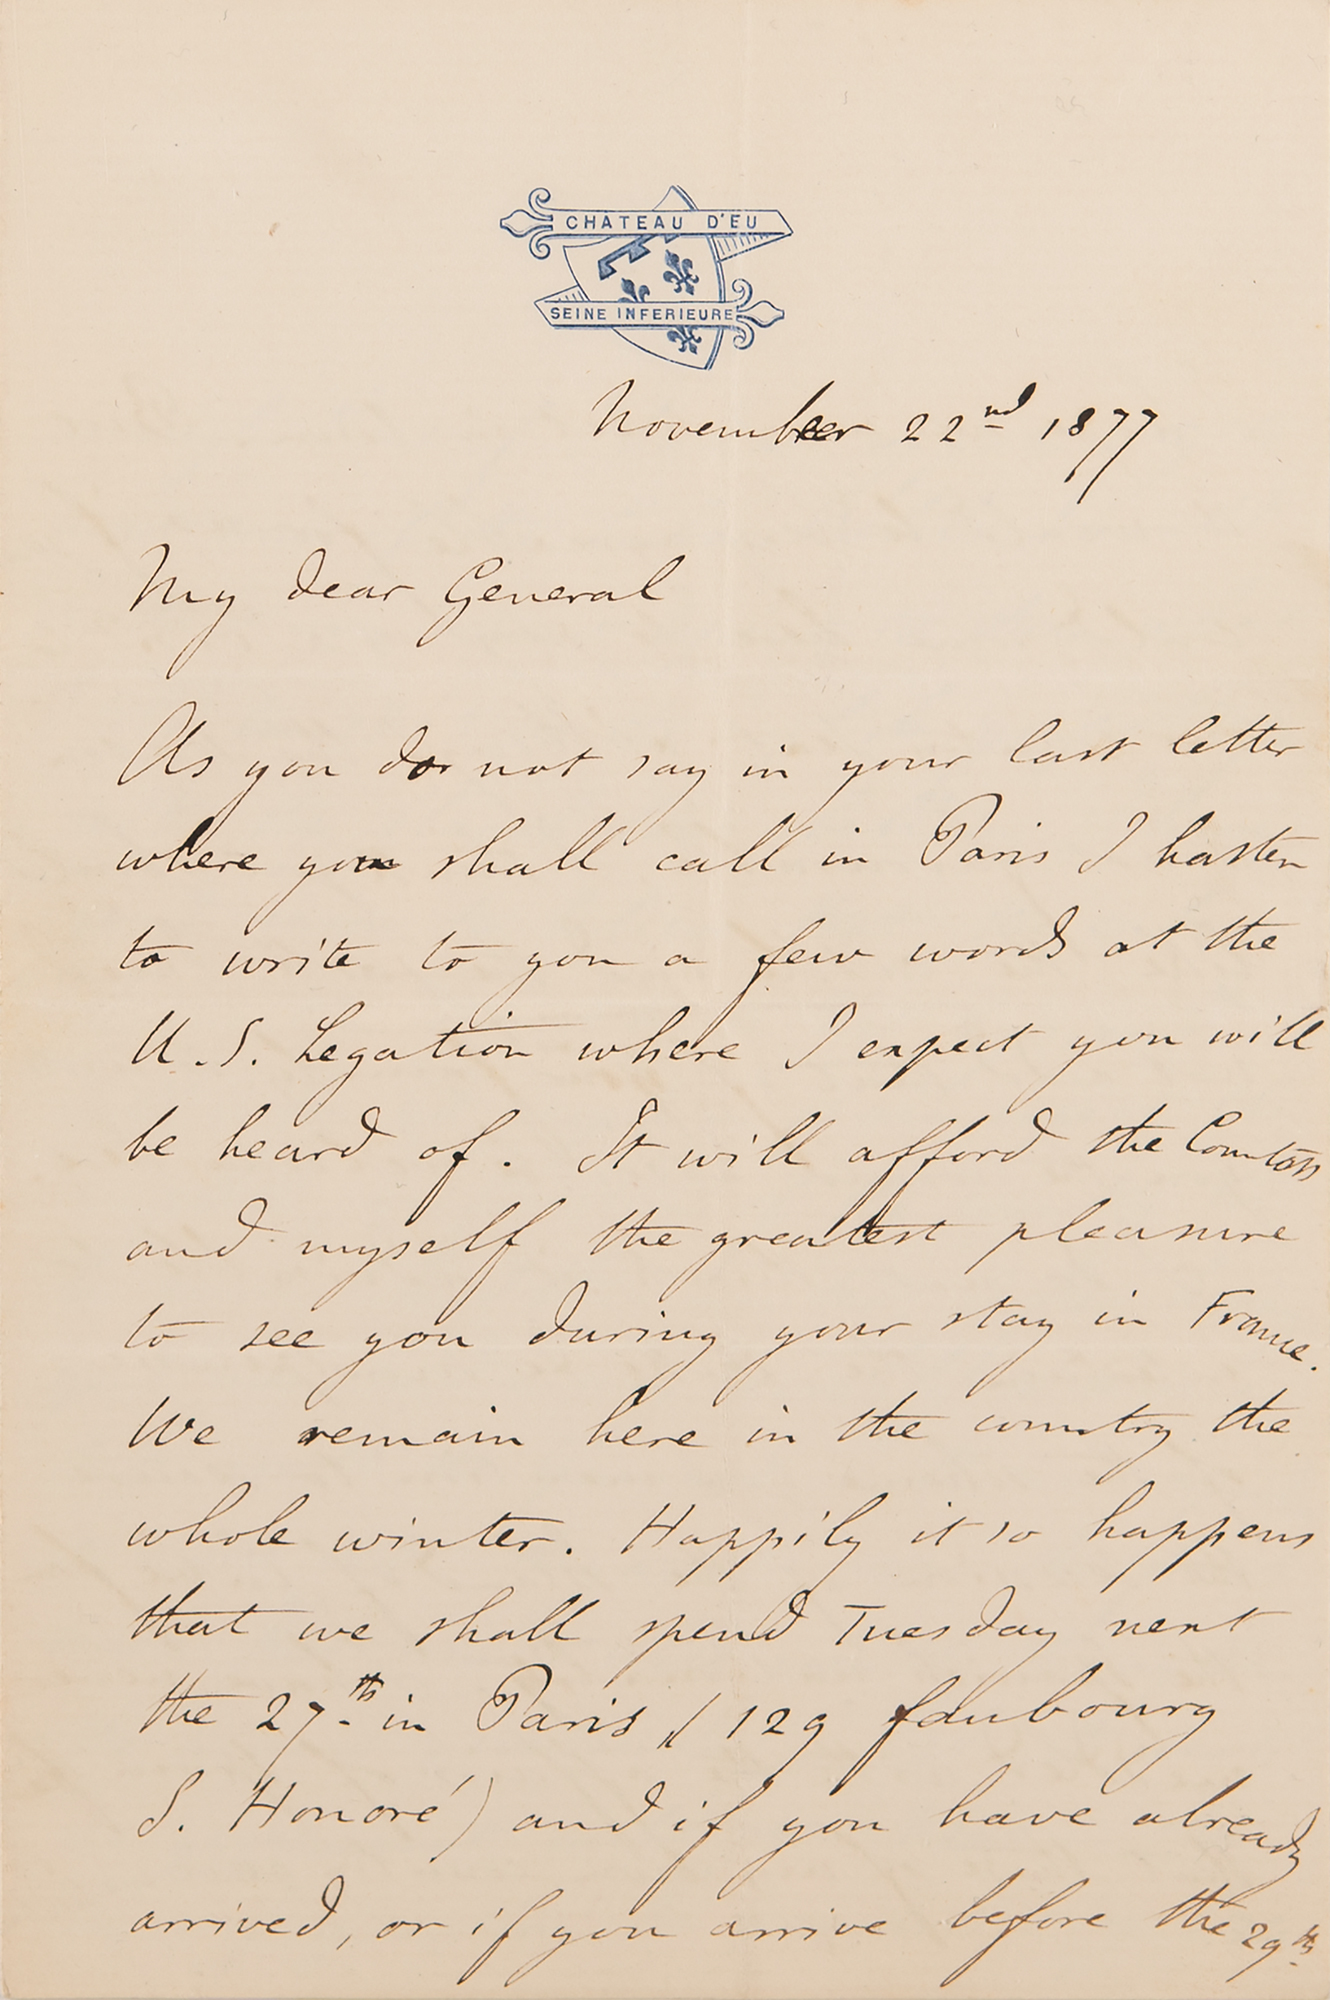 CHATEAU D'EU
SEINE INFERIEURE
November 22nd 1877
My dear General
As you do not say in your last letter
where you shall call in Paris I hasten
to write to you a few words at the
U.S. Legation where I expect you will
be heard of. It will afford the Comtess
and myself the greatest pleasure
to see you during your stay in France.
We remain here in the country the
whole winter. Happily it so happens
that we shall spend Tuesday next
the 27th in Paris (129 faubourg
S. Honoré) and if you have already
arrived, or if you arrive before the 29th